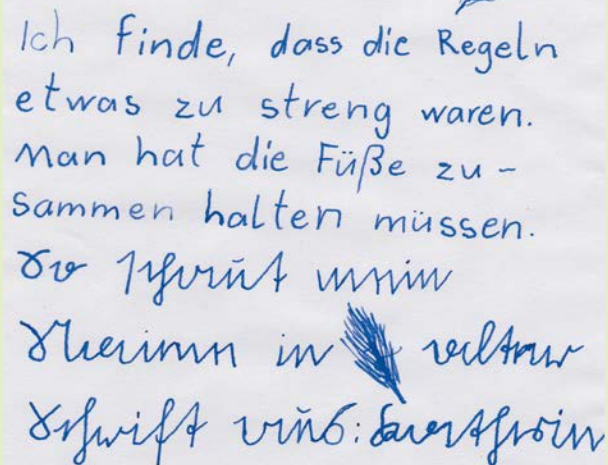 Ich finde, dass die Regeln
etwas zu streng waren.
Man hat die Füße zu-
sammen halten müssen.
So schaut mein
in alter
Schrift aus: